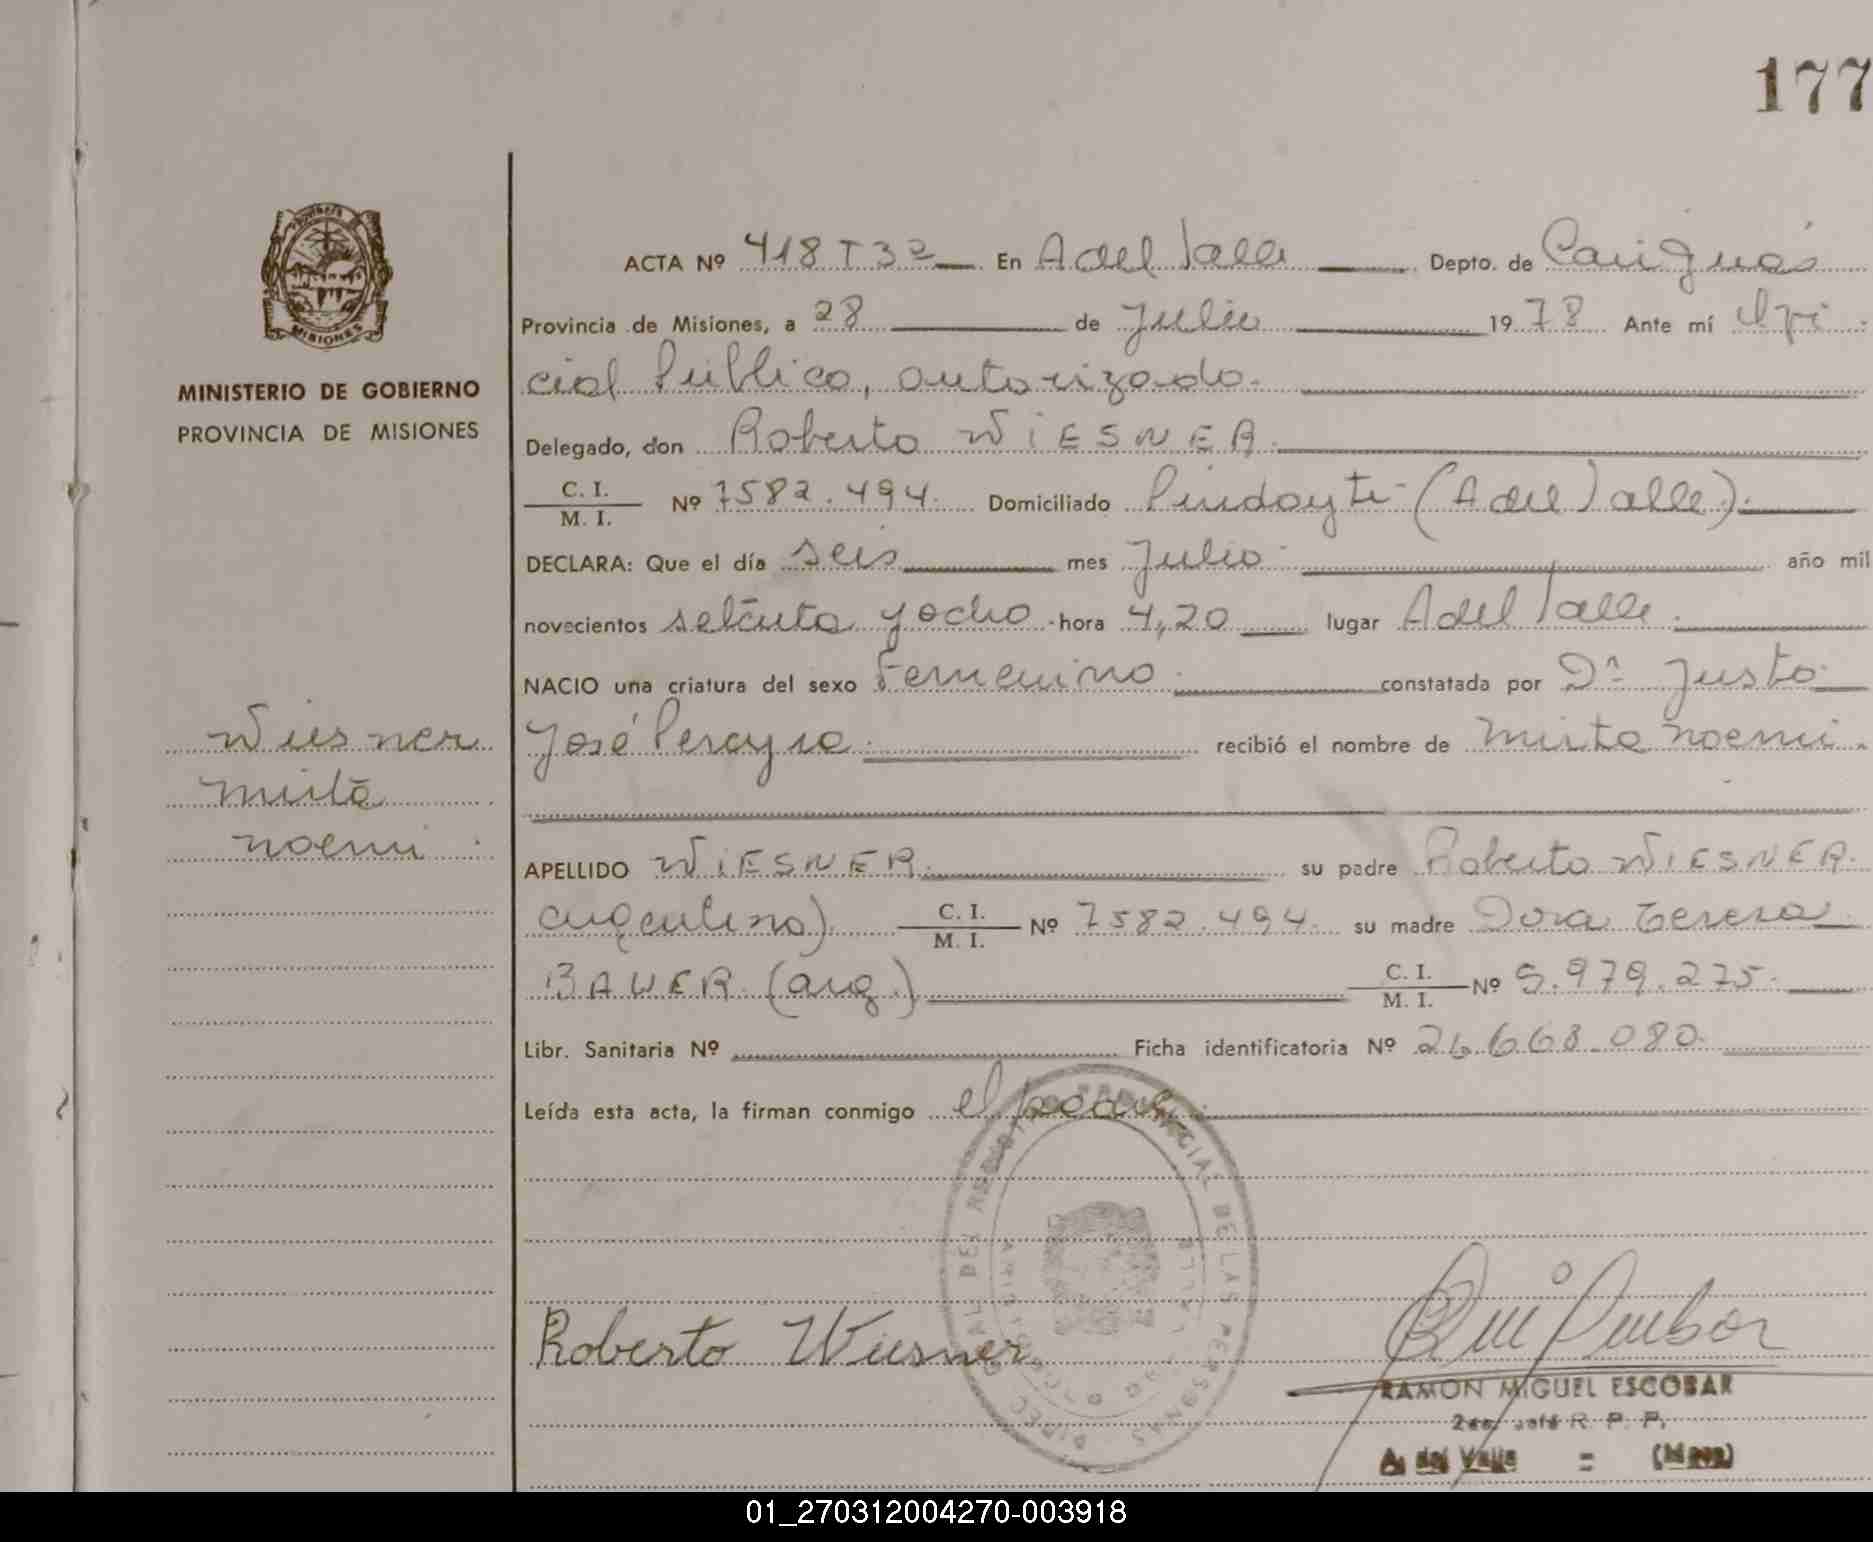 177
ACTA Nº 418 T 3º En A del Valle Depto. de Cainguás
Provincia de Misiones, a 28 de Julio 1978 Ante mí Ofi
cial Público, autorizado.
Delegado, don Roberto WIESNER.
C. I. / M. I. Nº 7582.494. Domiciliado Pindayti - (A del Valle).
DECLARA: Que el día seis mes Julio año mil
novecientos seteuta y ocho hora 4,20 lugar A del Valle.
NACIO una criatura del sexo Femenino constatada por Dr. Justo
José Pereyra recibió el nombre de Mirta Noemi.
Wiesner
Mirta
Noemi.
APELLIDO WIESNER. su padre Roberto WIESNER.
argentino) C. I. / M. I. Nº 7582.494. su madre Dora Teresa
BAUER (arg.) C. I. / M. I. Nº 5.979.275.
Libr. Sanitaria Nº Ficha identificatoria Nº 26.668.080.
Leída esta acta, la firman conmigo el padre.
MISIONES
MINISTERIO DE GOBIERNO
PROVINCIA DE MISIONES
DE LAS PERSONAS
Roberto Wiesner
RAMON MIGUEL ESCOBAR
2do. Jefe R. P. P.
A. del Valle = (Mnes)
01_270312004270-003918